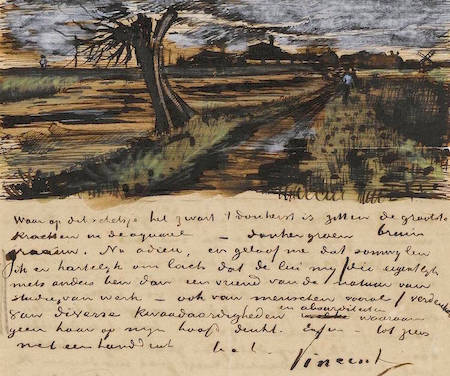 Waar op dit schetsje het zwart 't donkerst is zitten de grootste
krachten in de aquarel — donkergroen bruin
graauw. Nu adieu, en geloof me dat somwijlen
ik er hartelijk om lach dat de lui mij (die eigentlijk
niets anders ben dan een vriend van de natuur van
studie van werk — ook van menschen vooral) verdenken
van diverse kwaadaardigheden en absurditeiten waaraan
geen haar op mijn hoofd denkt. Enfin — tot ziens
met een handdruk
Vincent